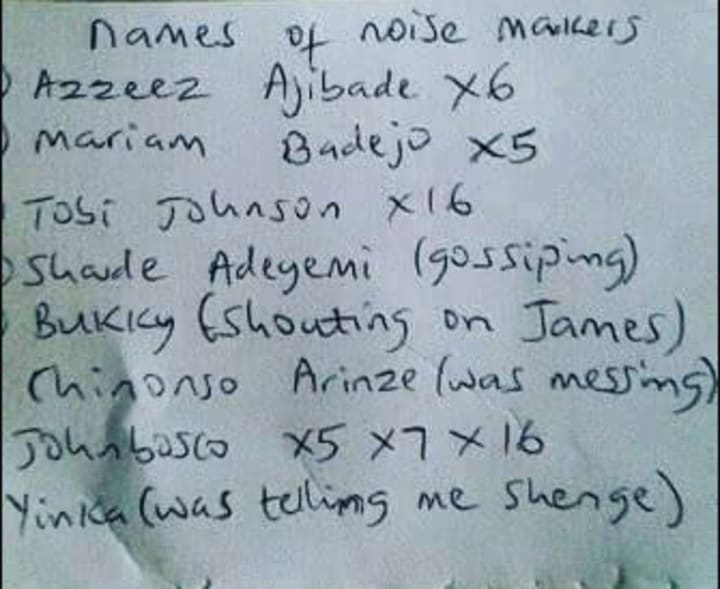 names of noise markers
Azzeez Ajibade x6
Mariam Badejo x5
Tobi Johnson x16
Shade Adeyemi (gossiping)
Bukky (shouting on James)
Chinonso Arinze (was messing)
Johnbosco x5 x7 x16
Yinka (was telling me shenge)